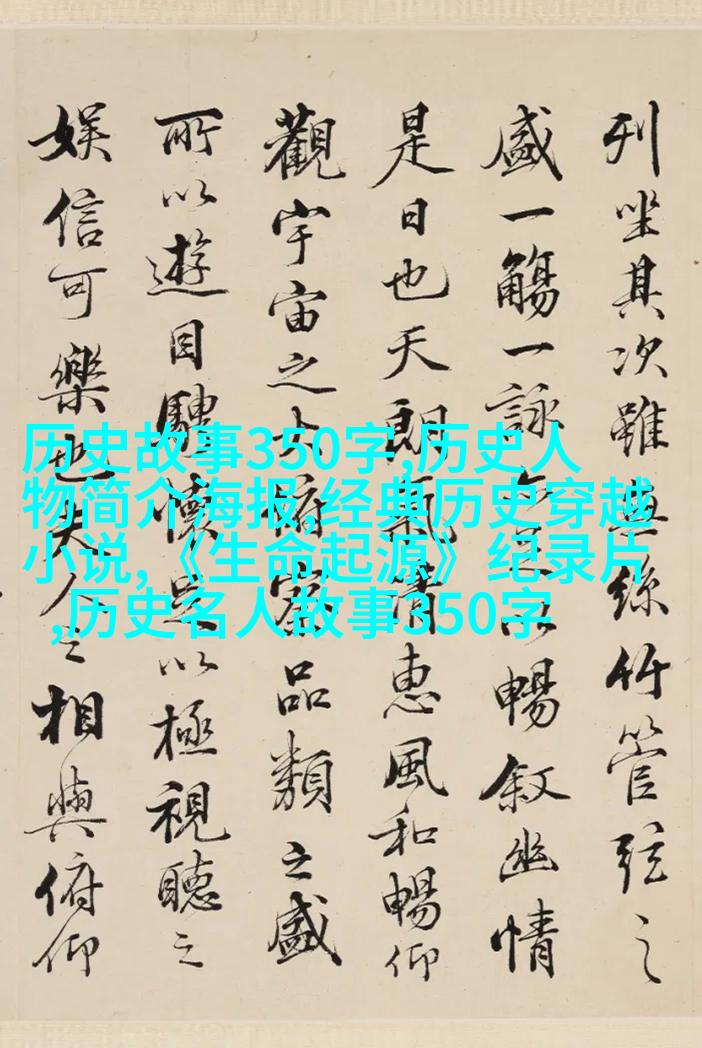 列坐其次雖無絲竹管弦之
盛一觴一詠亦足以暢敘幽情
是日也天朗氣清惠風和暢仰
觀宇宙之大俯察品類之盛
所以遊目騁懷足以極視聽之
娛信可樂也夫人之相與俯仰
历史故事350字,历史人
物简介海报,经典历史穿越
小说,《生命起源》纪录片
,历史名人故事350字